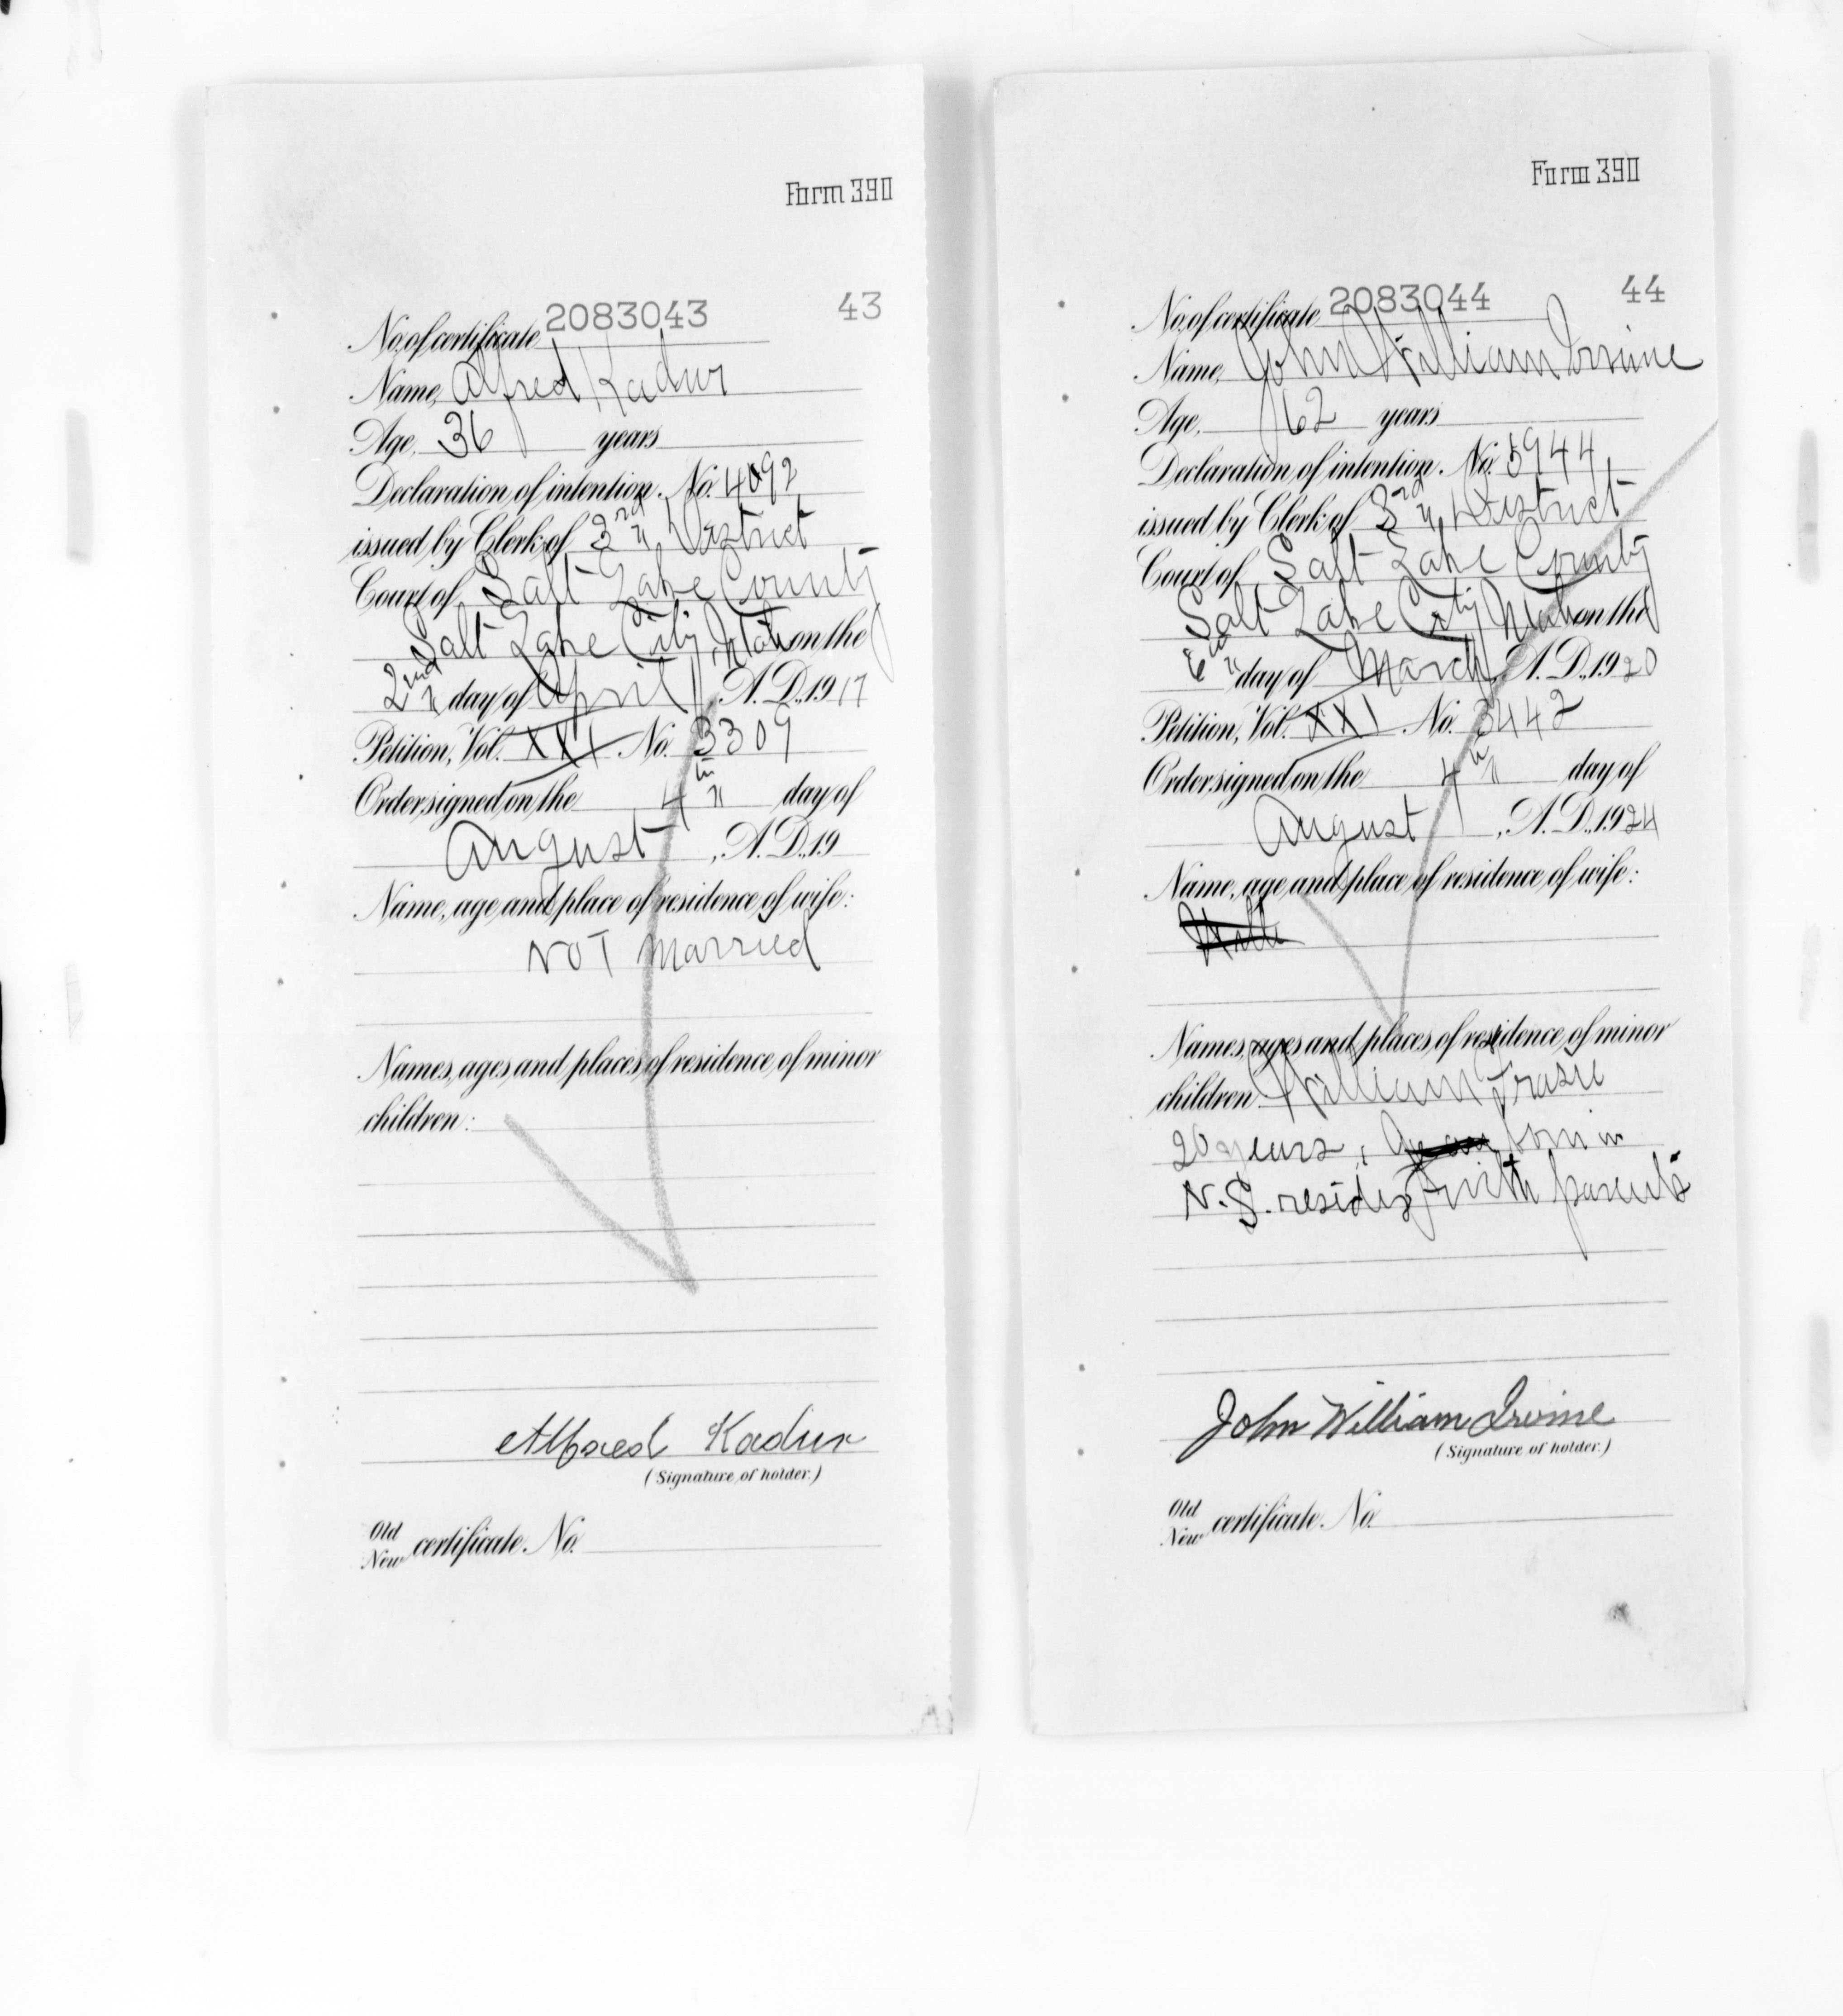 Form 390
No. of certificate 2083043 43
Name, Alfred Kadur
Age, 36 years
Declaration of intention, No. 4092
issued by Clerk of 3rd District
Court of Salt Lake County
Salt Lake City Utah on the
2nd day of April, A. D., 1917
Petition, Vol. XXI No. 3309
Order signed on the 4th day of
August, A. D., 19
Name, age and place of residence of wife:
NOT Married
Names, ages and places of residence of minor
children:
Alfred Kadur
(Signature of holder.)
Old
New certificate. No.
Form 390
No. of certificate 2083044 44
Name, John William Irvine
Age, 62 years
Declaration of intention, No. 5944
issued by Clerk of 3rd District
Court of Salt Lake County
Salt Lake City Utah on the
day of March, A. D., 1920
Petition, Vol. XXI No. 3442
Order signed on the 4th day of
August, A. D., 1924
Name, age and place of residence of wife:
Names, ages and places of residence of minor
children William
20 years, born in
N.S. resides with parents
John William Irvine
(Signature of holder.)
Old
New certificate. No.